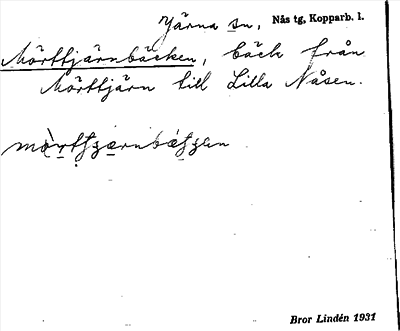 Järna sn, Nås tg, Kopparb. l.
Mörttjärnbäcken, bäck från
Mörttjärn till Lilla Nåsen.
Bror Lindén 1931